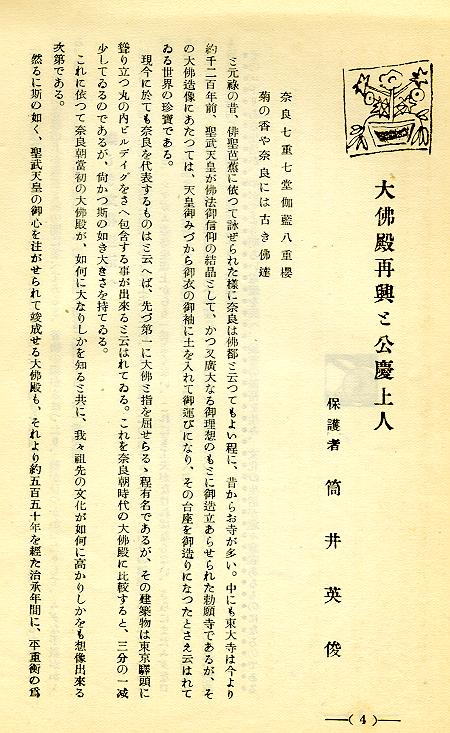 大佛殿再興と公慶上人
保護者　筒井英俊
奈良七重七堂伽藍八重櫻
菊の香や奈良には古き佛達
と元祿の昔、俳聖芭蕉に依つて詠ぜられた樣に奈良は佛都と云つてもよい程に、昔からお寺が多い。中にも東大寺は今より
約千二百年前、聖武天皇が佛法御信仰の結晶として、かつ又廣大なる御理想のもとに御造立あらせられた勅願寺であるが、そ
の大佛造像にあたつては、天皇御みづから御衣の御袖に土を入れて御運びになり、その台座を御造りになつたとさえ云はれて
ゐる世界の珍寶である。
現今に於ても奈良を代表するものはと云へば、先づ第一に大佛と指を屈せらるゝ程有名であるが、その建築物は東京驛頭に
聳り立つ丸の内ビルデイグをさへ包含する事が出來ると云はれてゐる。これを奈良朝時代の大佛殿に比較すると、三分の一減
少してゐるのであるが、尙かつ斯の如き大きさを持てゐる。
これに依つて奈良朝當初の大佛殿が、如何に大なりしかを知ると共に、我々祖先の文化が如何に高かりしかをも想像出來る
次第である。
然るに斯の如く、聖武天皇の御心を注がせられて竣成せる大佛殿も、それより約五百五十年を經た治承年間に、平重衡の爲
（4）